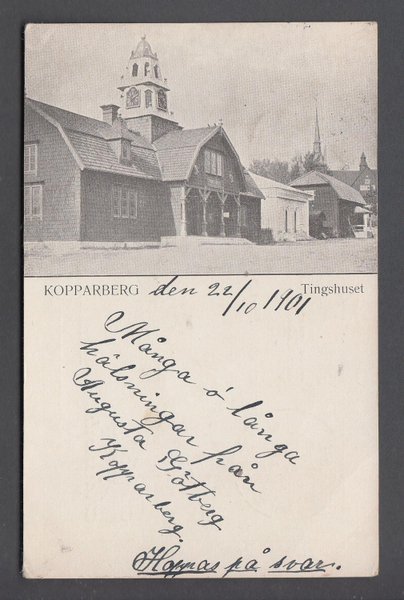 KOPPARBERG den 22/10 1901 Tingshuset
Många o långa
hälsningar från
Augusta Götberg
Kopparberg.
Hoppas på svar.